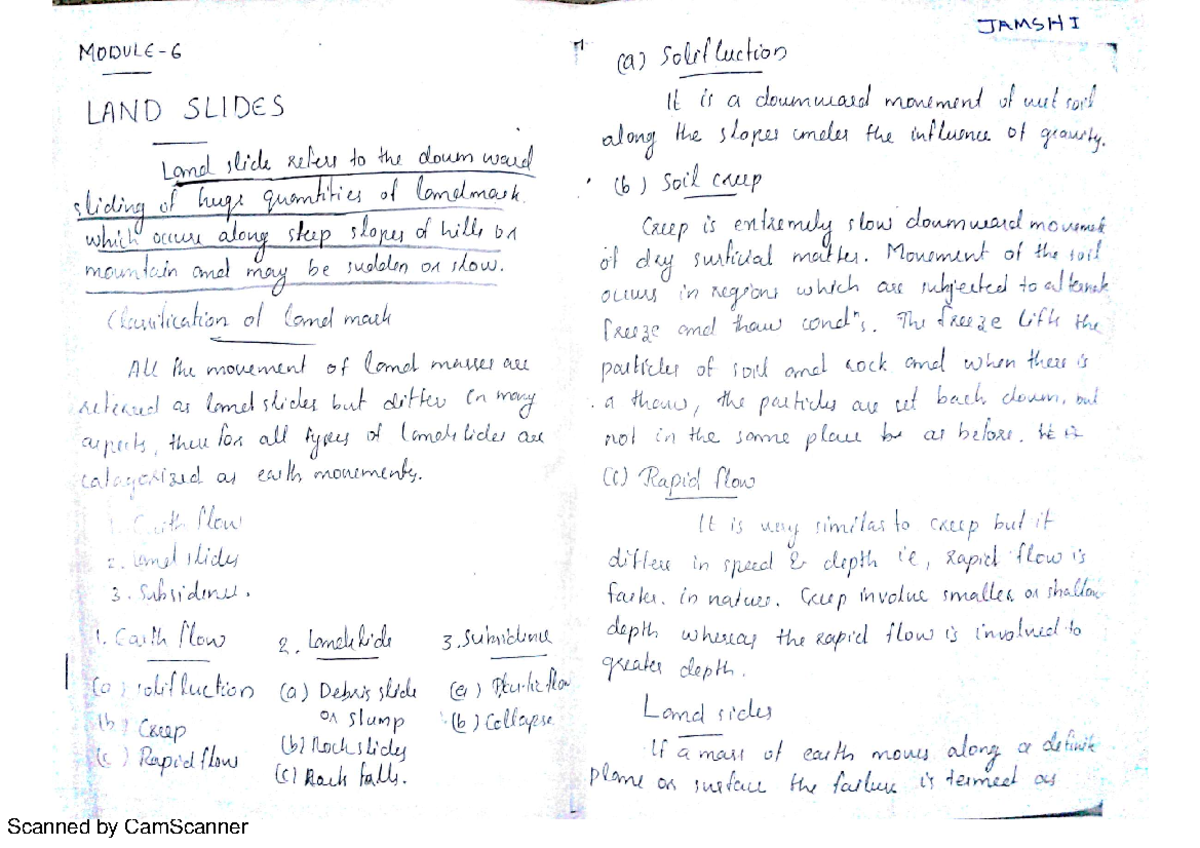 JAMSHI
MODULE-6
LAND SLIDES
Land slide refers to the down ward
sliding of huge quantities of landmark
which occurs along steep slopes of hills or
mountain and may be sudden or slow.
Classification of land mark
All the movement of land masses are
referred as land slides but differ in many
aspects, there for all types of landslides are
catagorized as earth movements.
1. Earth flow
2. Land slides
3. Subsidence.
1. Earth flow 2. Landslide 3. Subsidence
(a) solifluction (a) Debris slide (a) Plastic flow
or slump
(b) Creep (b) Rock slides (b) Collapse
(c) Rapid flow (c) Rock falls.
(a) Solifluction
It is a downward movement of wet soil
along the slopes under the influence of gravity.
(b) Soil creep
Creep is extremely slow downward movement
of dry surficial matter. Movement of the soil
occurs in regions which are subjected to alternate
freeze and thaw condns. The freeze lifts the
particles of soil and rock and when there is
a thaw, the particles are set back down, but
not in the same place as before.
(C) Rapid flow
It is very similar to creep but it
differs in speed & depth ie, rapid flow is
faster. in nature. Creep involve smaller or shallow
depth whereas the rapid flow is involved to
greater depth.
Land sides
If a mass of earth moves along a definite
plane or surface the failure is termed as
Scanned by CamScanner